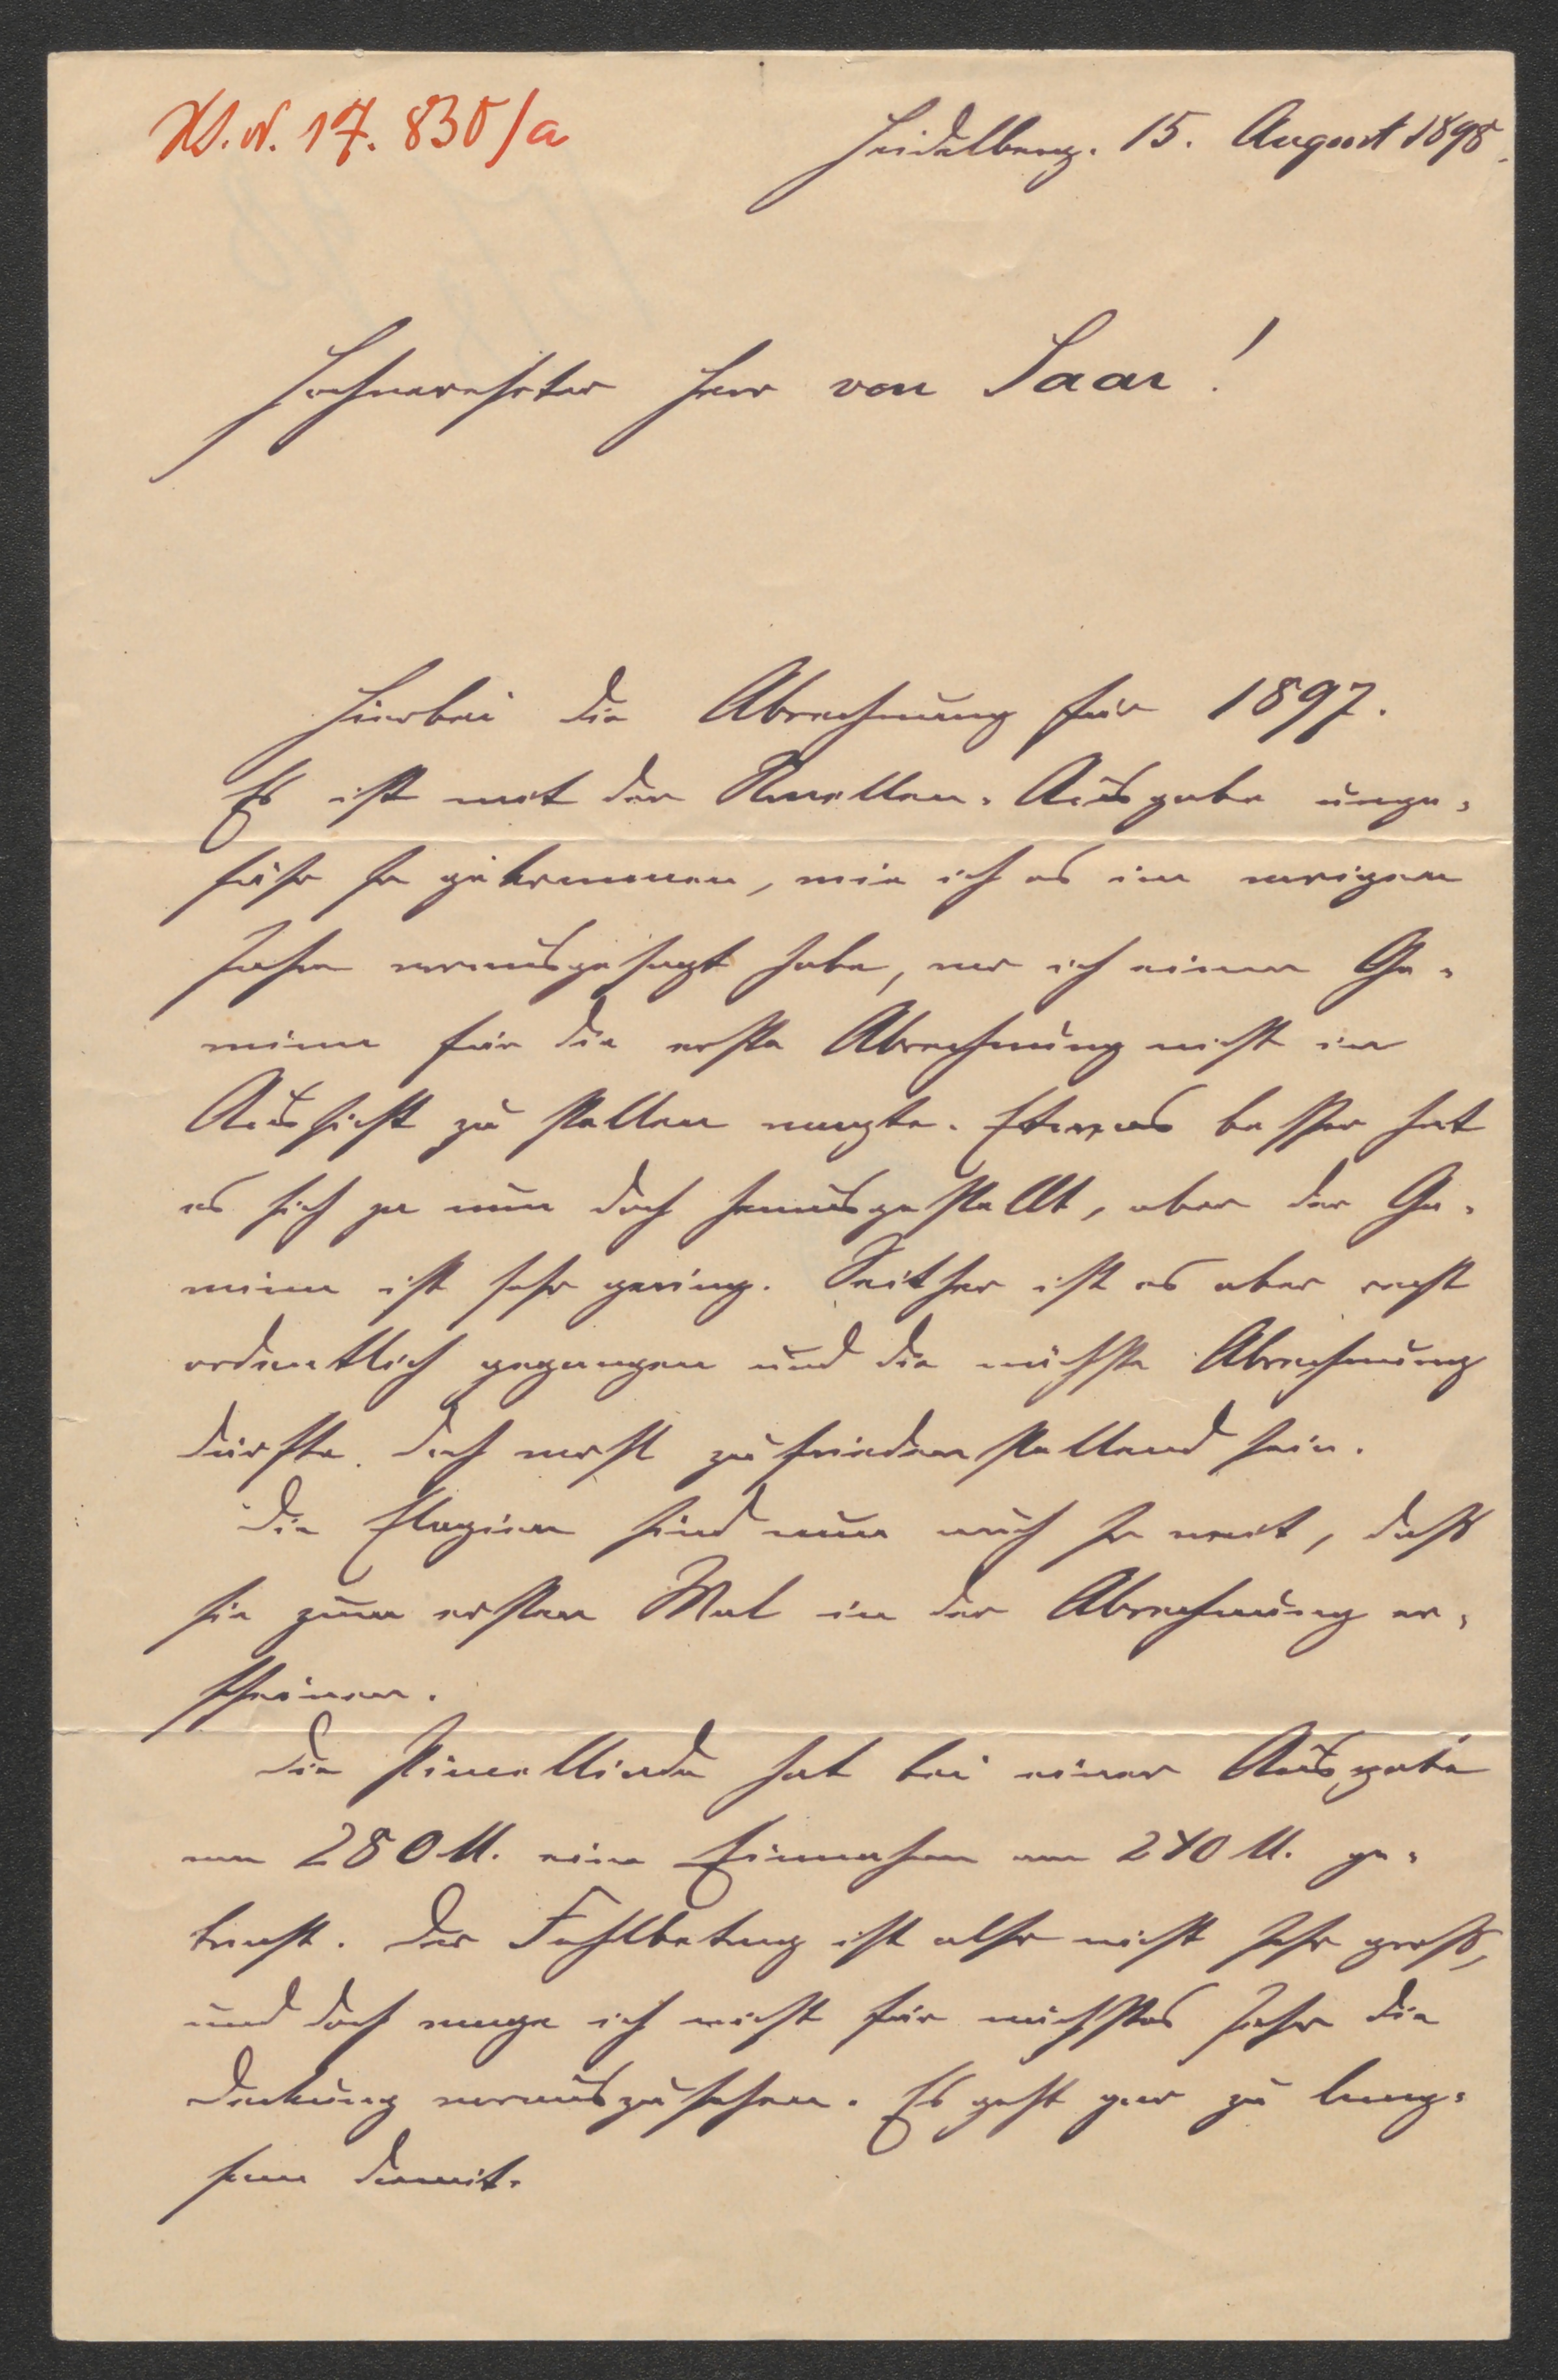 H.N. 17. 830/a
Heidelberg. 15. August 1898.
Hochverehrter Herr von Saar!
Hierbei die Abrechnung für 1897.
Es ist mit der Novellen-Ausgabe unge-
fähr so gekommen, wie ich es im vorigen
Jahre vorausgesagt habe, wo ich einen Ge-
winn für die erste Abrechnung nicht in
Aussicht zu stellen wagte. Etwas besser hat
es sich ja nun doch herausgestellt, aber der Ge-
winn ist sehr gering. Seither ist es aber recht
ordentlich gegangen und die nächste Abrechnung
dürfte doch wohl zufriedenstellend sein.
Die Elegien sind nun auch so weit, daß
sie zum ersten Mal in der Abrechnung er-
scheinen.
Die Pincelliade hat bei einer Ausgabe
von 280 M. eine Einnahme von 240 M. ge-
bracht. Der Fehlbetrag ist also nicht sehr groß,
und doch wage ich nicht für nächstes Jahr die
Deckung vorauszusehen. Es geht gar zu lang-
sam damit.